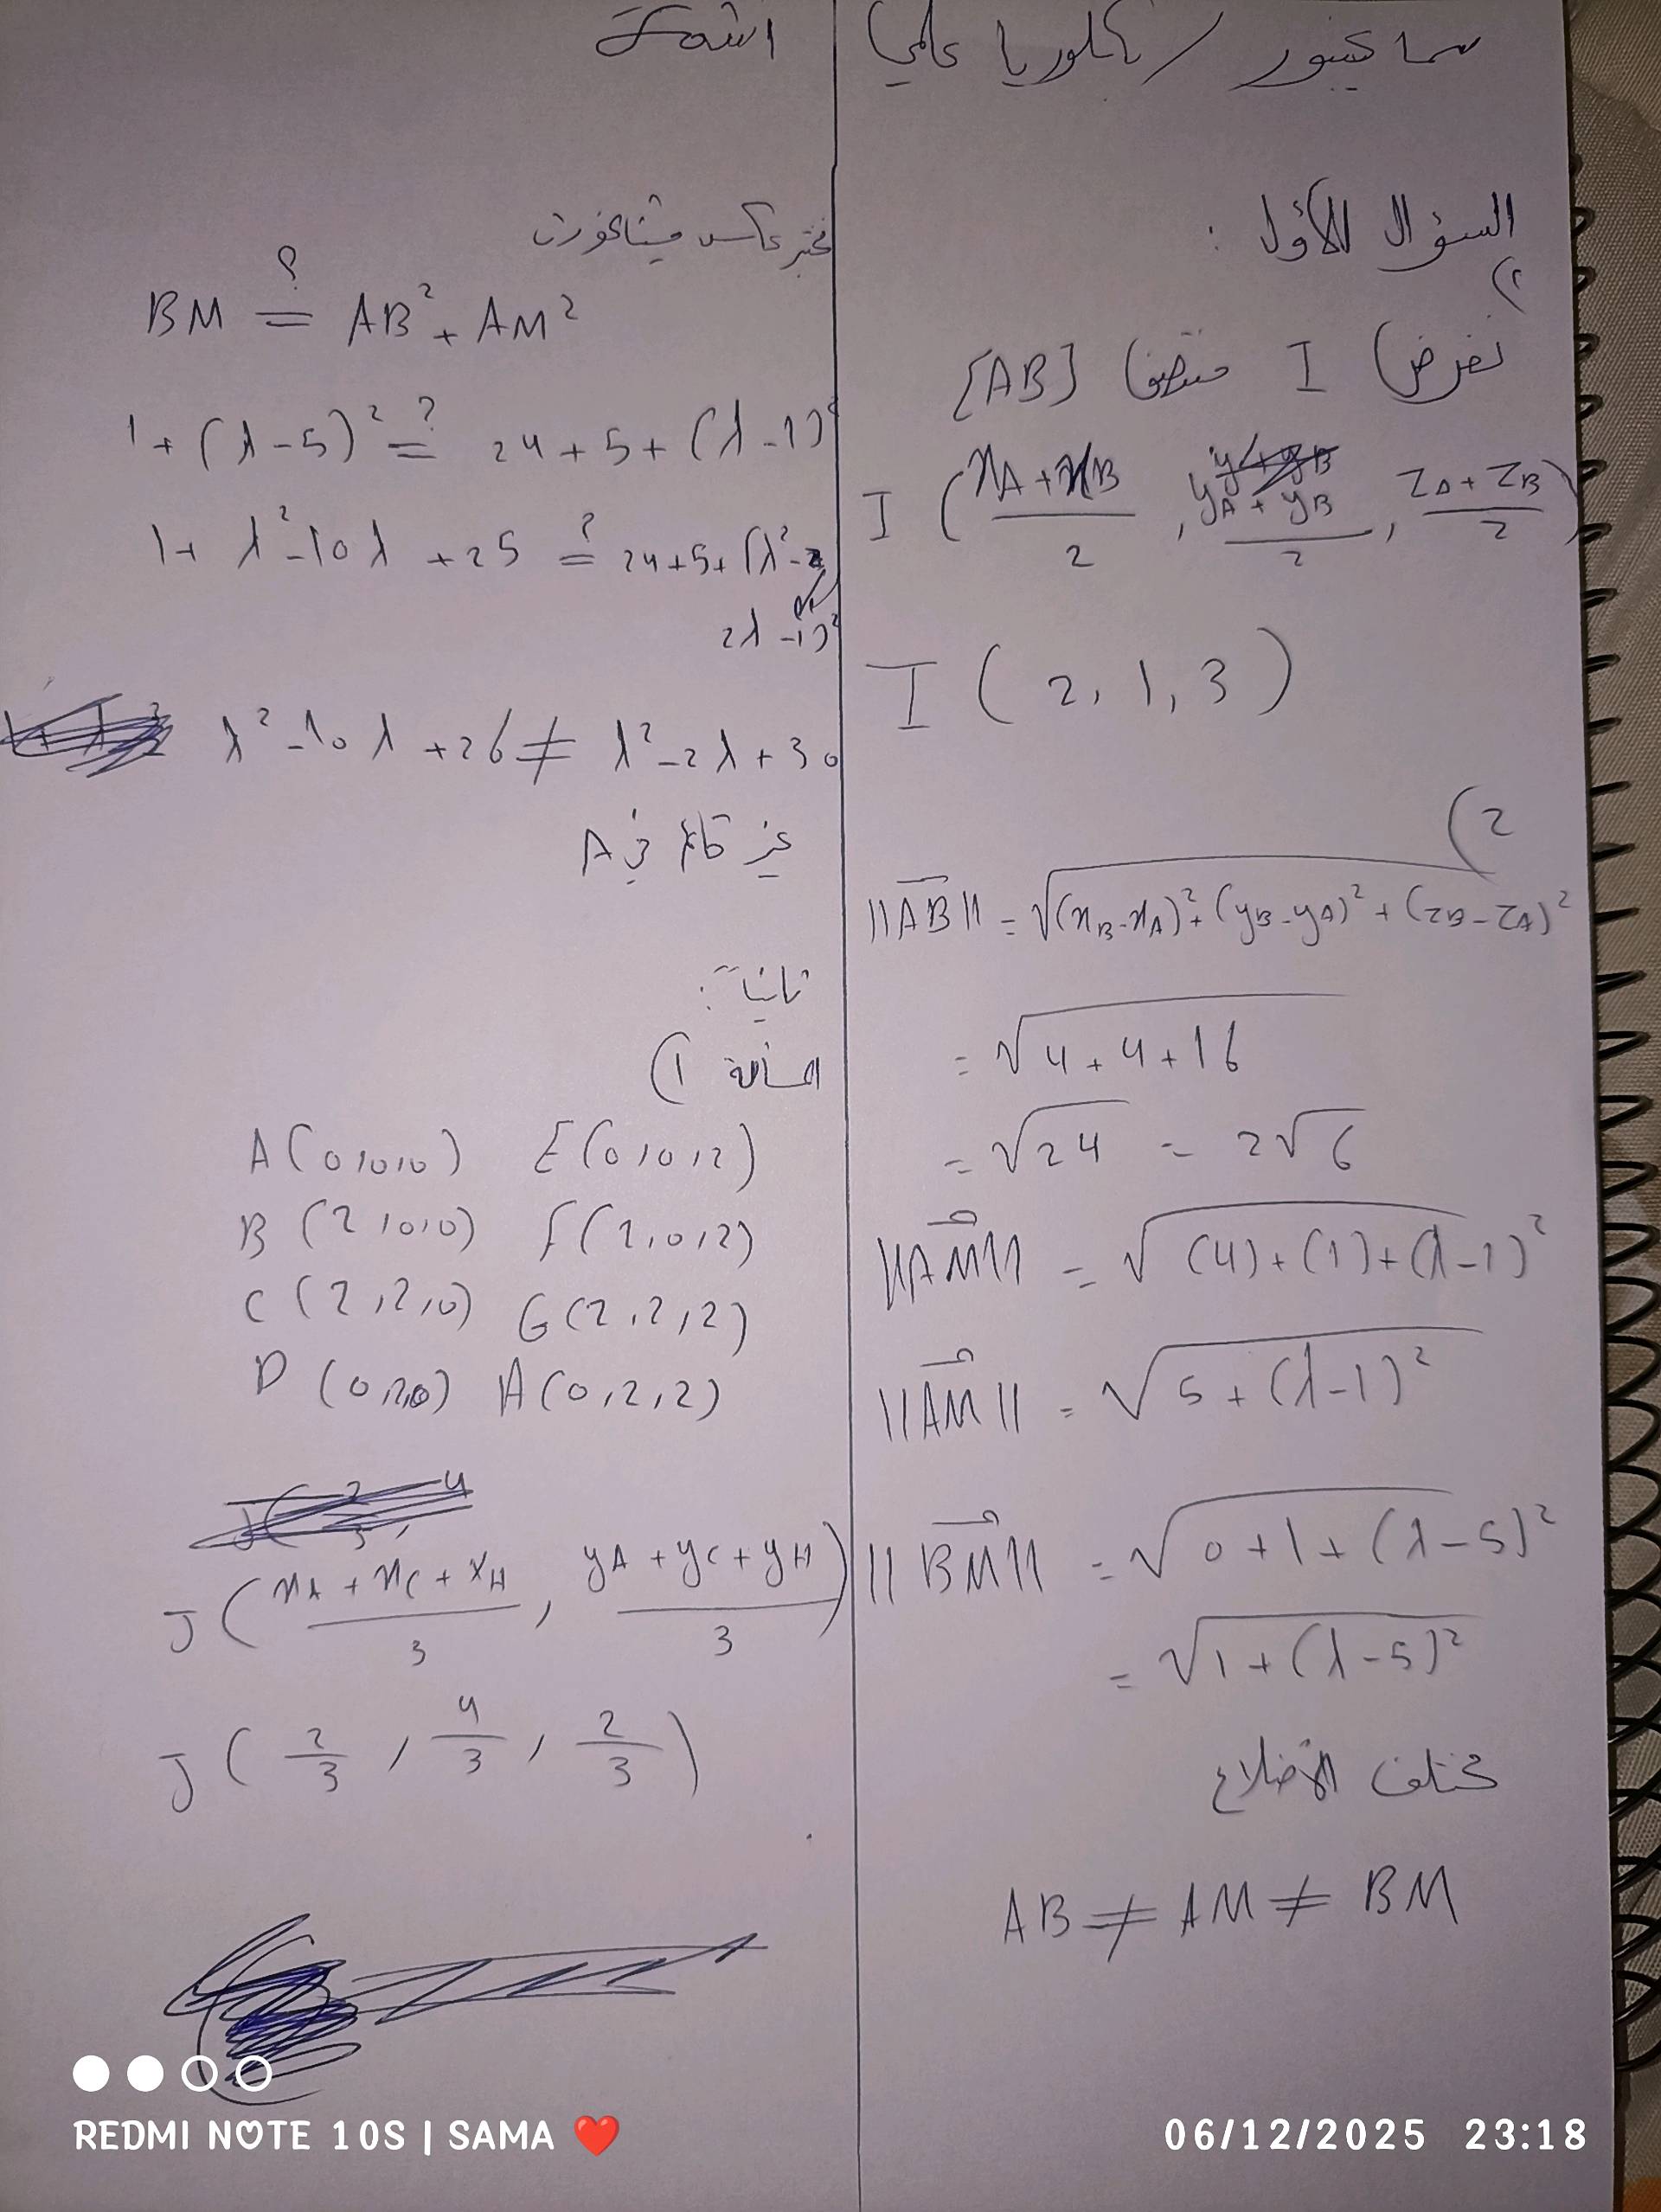 سما / بكلوريا علمي
السؤال الأول :
1)
نفرض I منتصف [AB]
I ( xA + xB / 2 , yA + yB / 2 , zA + zB / 2 )
I ( 2, 1, 3 )
2)
||AB|| = √(xB - xA)² + (yB - yA)² + (zB - zA)²
= √4 + 4 + 16
= √24 = 2√6
||AM|| = √(4) + (1) + (λ-1)²
||AM|| = √5 + (λ-1)²
||BM|| = √0 + 1 + (λ-5)²
= √1 + (λ-5)²
مختلف الأضلاع
AB ≠ AM ≠ BM
نختبر عكس فيثاغورث
BM =? AB² + AM²
1 + (λ-5)² =? 24 + 5 + (λ-1)²
1 + λ² - 10λ + 25 =? 24 + 5 + (λ² -
2λ - 1)²
λ² - 10λ + 26 ≠ λ² - 2λ + 30
غير قائم في A
ثانياً :
المسألة 1)
A(0,0,0) E(0,0,2)
B(2,0,0) F(2,0,2)
C(2,2,0) G(2,2,2)
D(0,2,0) H(0,2,2)
J ( xA + xC + xH / 3 , yA + yC + yH / 3 )
J ( 2/3 , 4/3 , 2/3 )
REDMI NOTE 10S | SAMA ❤
06/12/2025 23:18